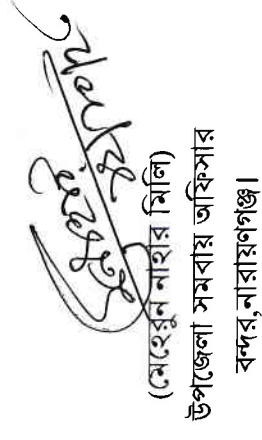 (মেহেরুন নাহার মিলি)
উপজেলা সমবায় অফিসার
বন্দর,নারায়ণগঞ্জ।